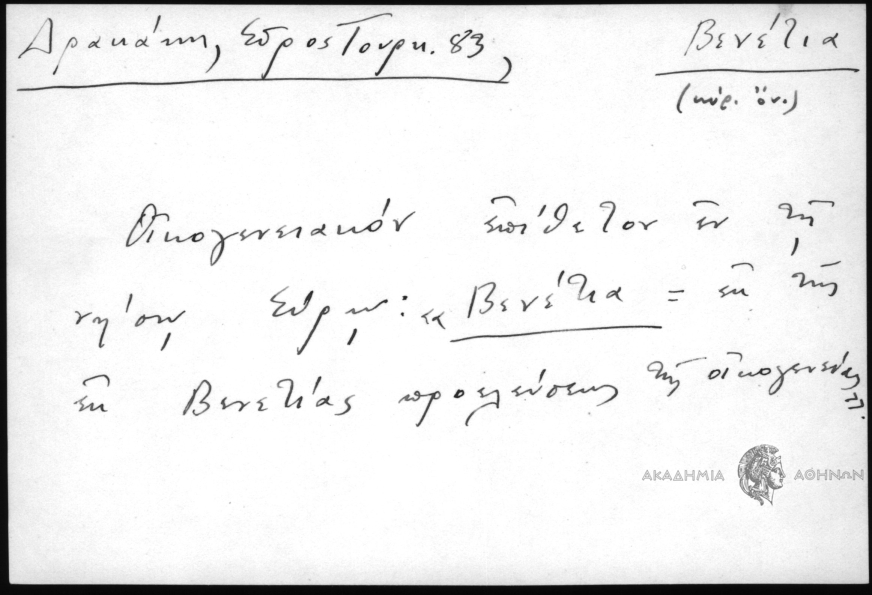 Δρακάκη, Σῦρος Τουρκ. 83,
Βενέτια
(κύρ. ὄν.)
Οἰκογενειακόν ἐπίθετον ἐν τῇ
νήσῳ Σύρῳ: «Βενέτια = ἐκ τῆς
ἐκ Βενετίας προελεύσεως τῆς οἰκογενείας».
ΑΚΑΔΗΜΙΑ ΑΘΗΝΩΝ